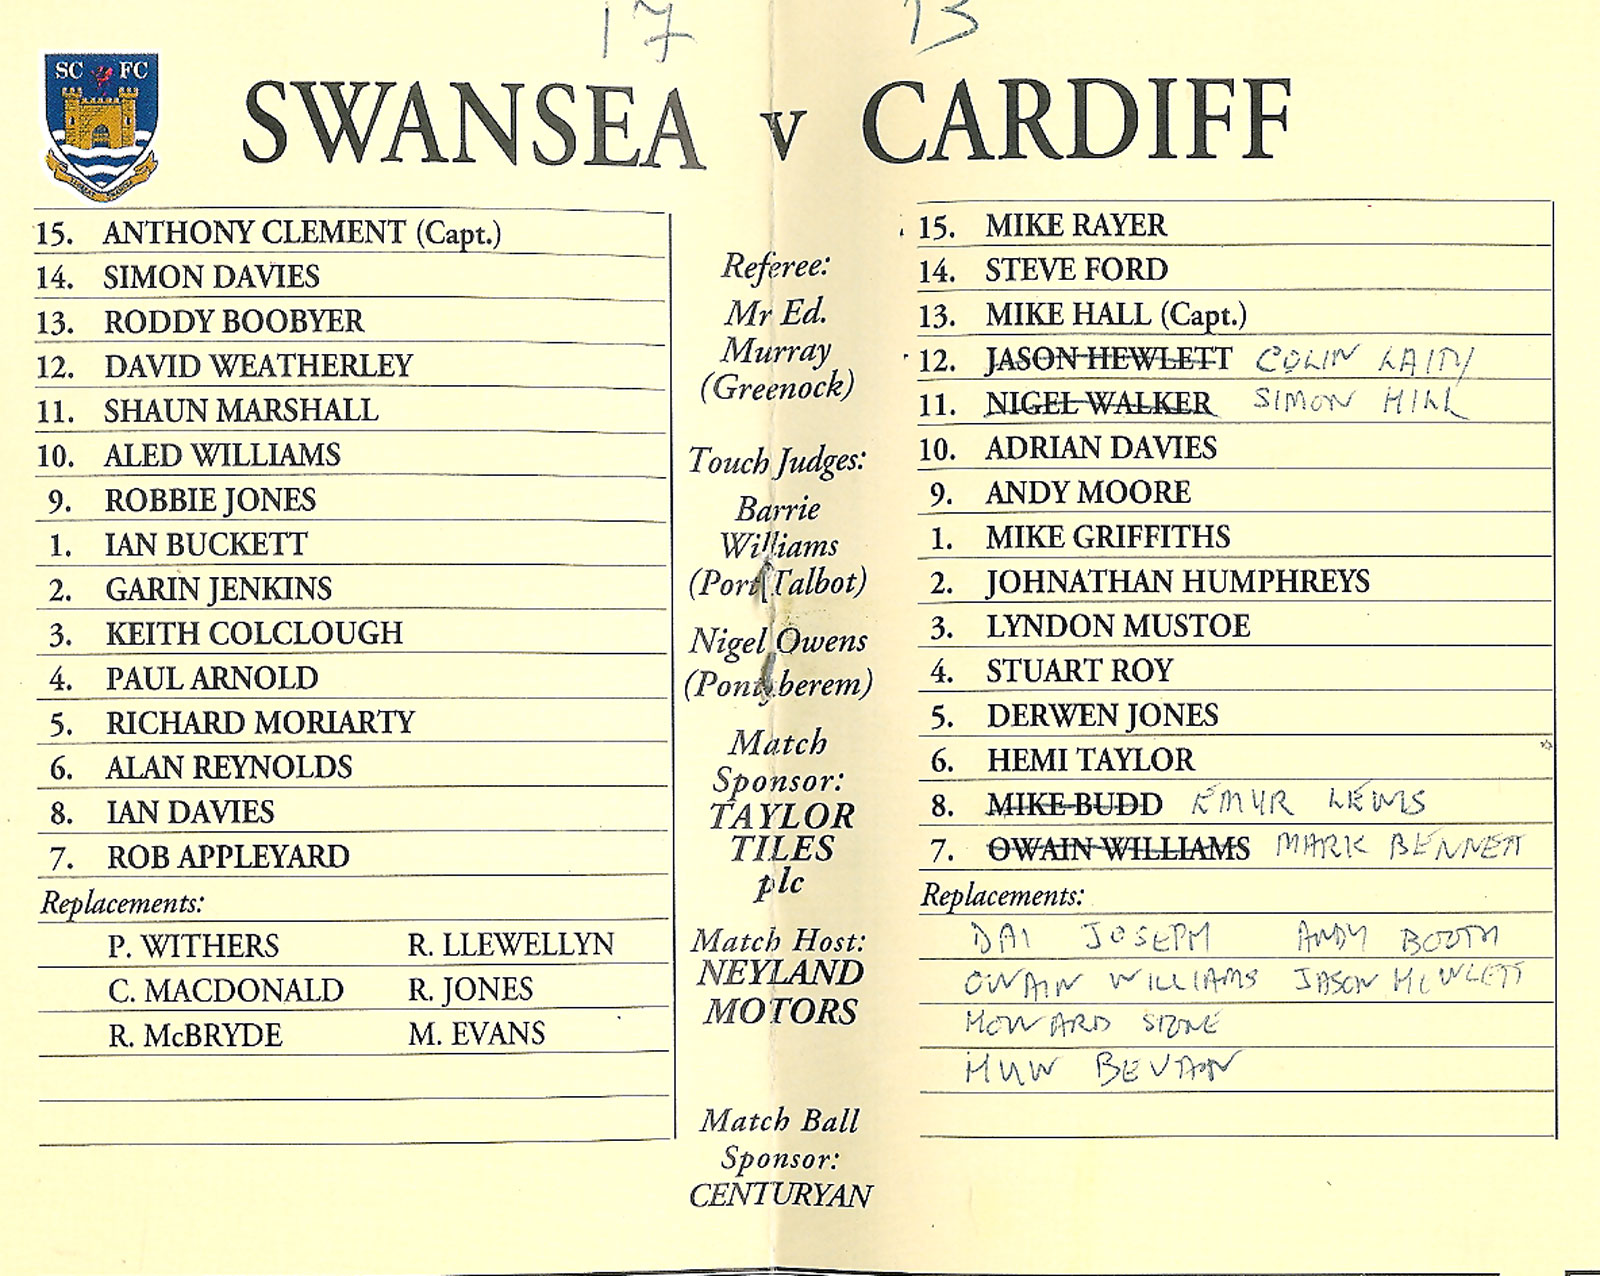 17 13
SC FC
SWANSEA v CARDIFF
15. ANTHONY CLEMENT (Capt.)
14. SIMON DAVIES
13. RODDY BOOBYER
12. DAVID WEATHERLEY
11. SHAUN MARSHALL
10. ALED WILLIAMS
9. ROBBIE JONES
1. IAN BUCKETT
2. GARIN JENKINS
3. KEITH COLCLOUGH
4. PAUL ARNOLD
5. RICHARD MORIARTY
6. ALAN REYNOLDS
8. IAN DAVIES
7. ROB APPLEYARD
Replacements:
P. WITHERS R. LLEWELLYN
C. MACDONALD R. JONES
R. McBRYDE M. EVANS
Referee:
Mr Ed.
Murray
(Greenock)
Touch Judges:
Barrie
Williams
(Port Talbot)
Nigel Owens
(Pontyberem)
Match
Sponsor:
TAYLOR
TILES
plc
Match Host:
NEYLAND
MOTORS
Match Ball
Sponsor:
CENTURYAN
15. MIKE RAYER
14. STEVE FORD
13. MIKE HALL (Capt.)
12. JASON HEWLETT COLIN LAITY
11. NIGEL WALKER SIMON HILL
10. ADRIAN DAVIES
9. ANDY MOORE
1. MIKE GRIFFITHS
2. JOHNATHAN HUMPHREYS
3. LYNDON MUSTOE
4. STUART ROY
5. DERWEN JONES
6. HEMI TAYLOR
8. MIKE BUDD EMYR LEWIS
7. OWAIN WILLIAMS MARK BENNETT
Replacements:
DAI JOSEPH ANDY BOOTH
OWAIN WILLIAMS JASON HEWLETT
HOWARD STONE
HUW BEVAN